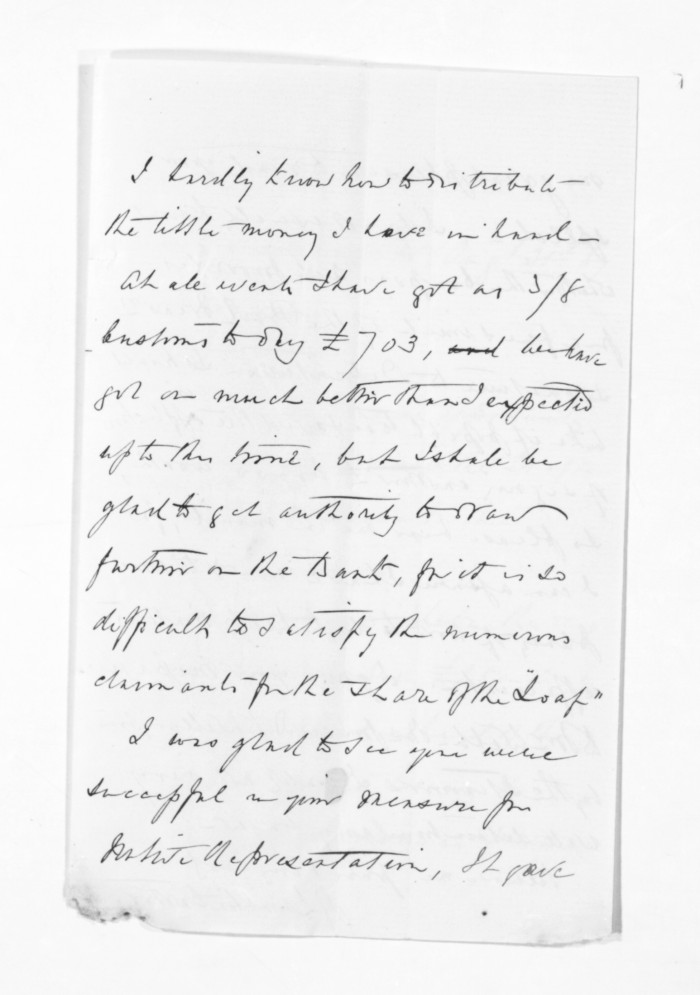 I hardly know how to distribute
the little money I have in hand –
At all events I have got as 3/8
Customs to day £703, and we have
got on much better than I expected
up to this time, but I shall be
glad to get authority to draw
further on the Bank, for it is so
difficult to satisfy the numerous
claimants for the share of the "Loaf"
I was glad to see you were
successful in your measure for
Native Representation, It gave